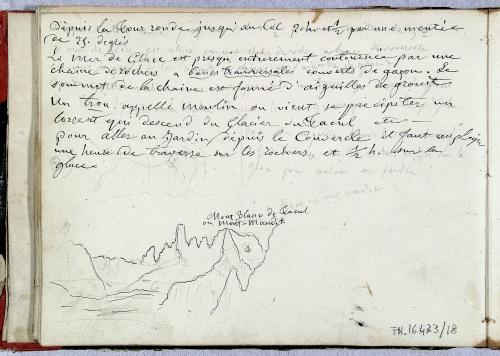 Depuis la Tour ronde jusqu'au Col 2 h et ½ par une montée
de 25 degrés
La Mer de Glace est presqu'entièrement contournée par une
chaîne de rochers a bancs transversales couverts de gazon. Le
sommet de la chaine est formé d'aiguilles de granit
Un trou appellé moulin ou vient se precipiter un
torrent qui descend du Glacier du Tacul
pour aller au Jardin, depuis le Couvercle il faut
une heure de traverse sur les rochers et ½ h. sur la
glace
Mont Blanc de Tacul
ou Mont-Maudit
FN. 16473/18